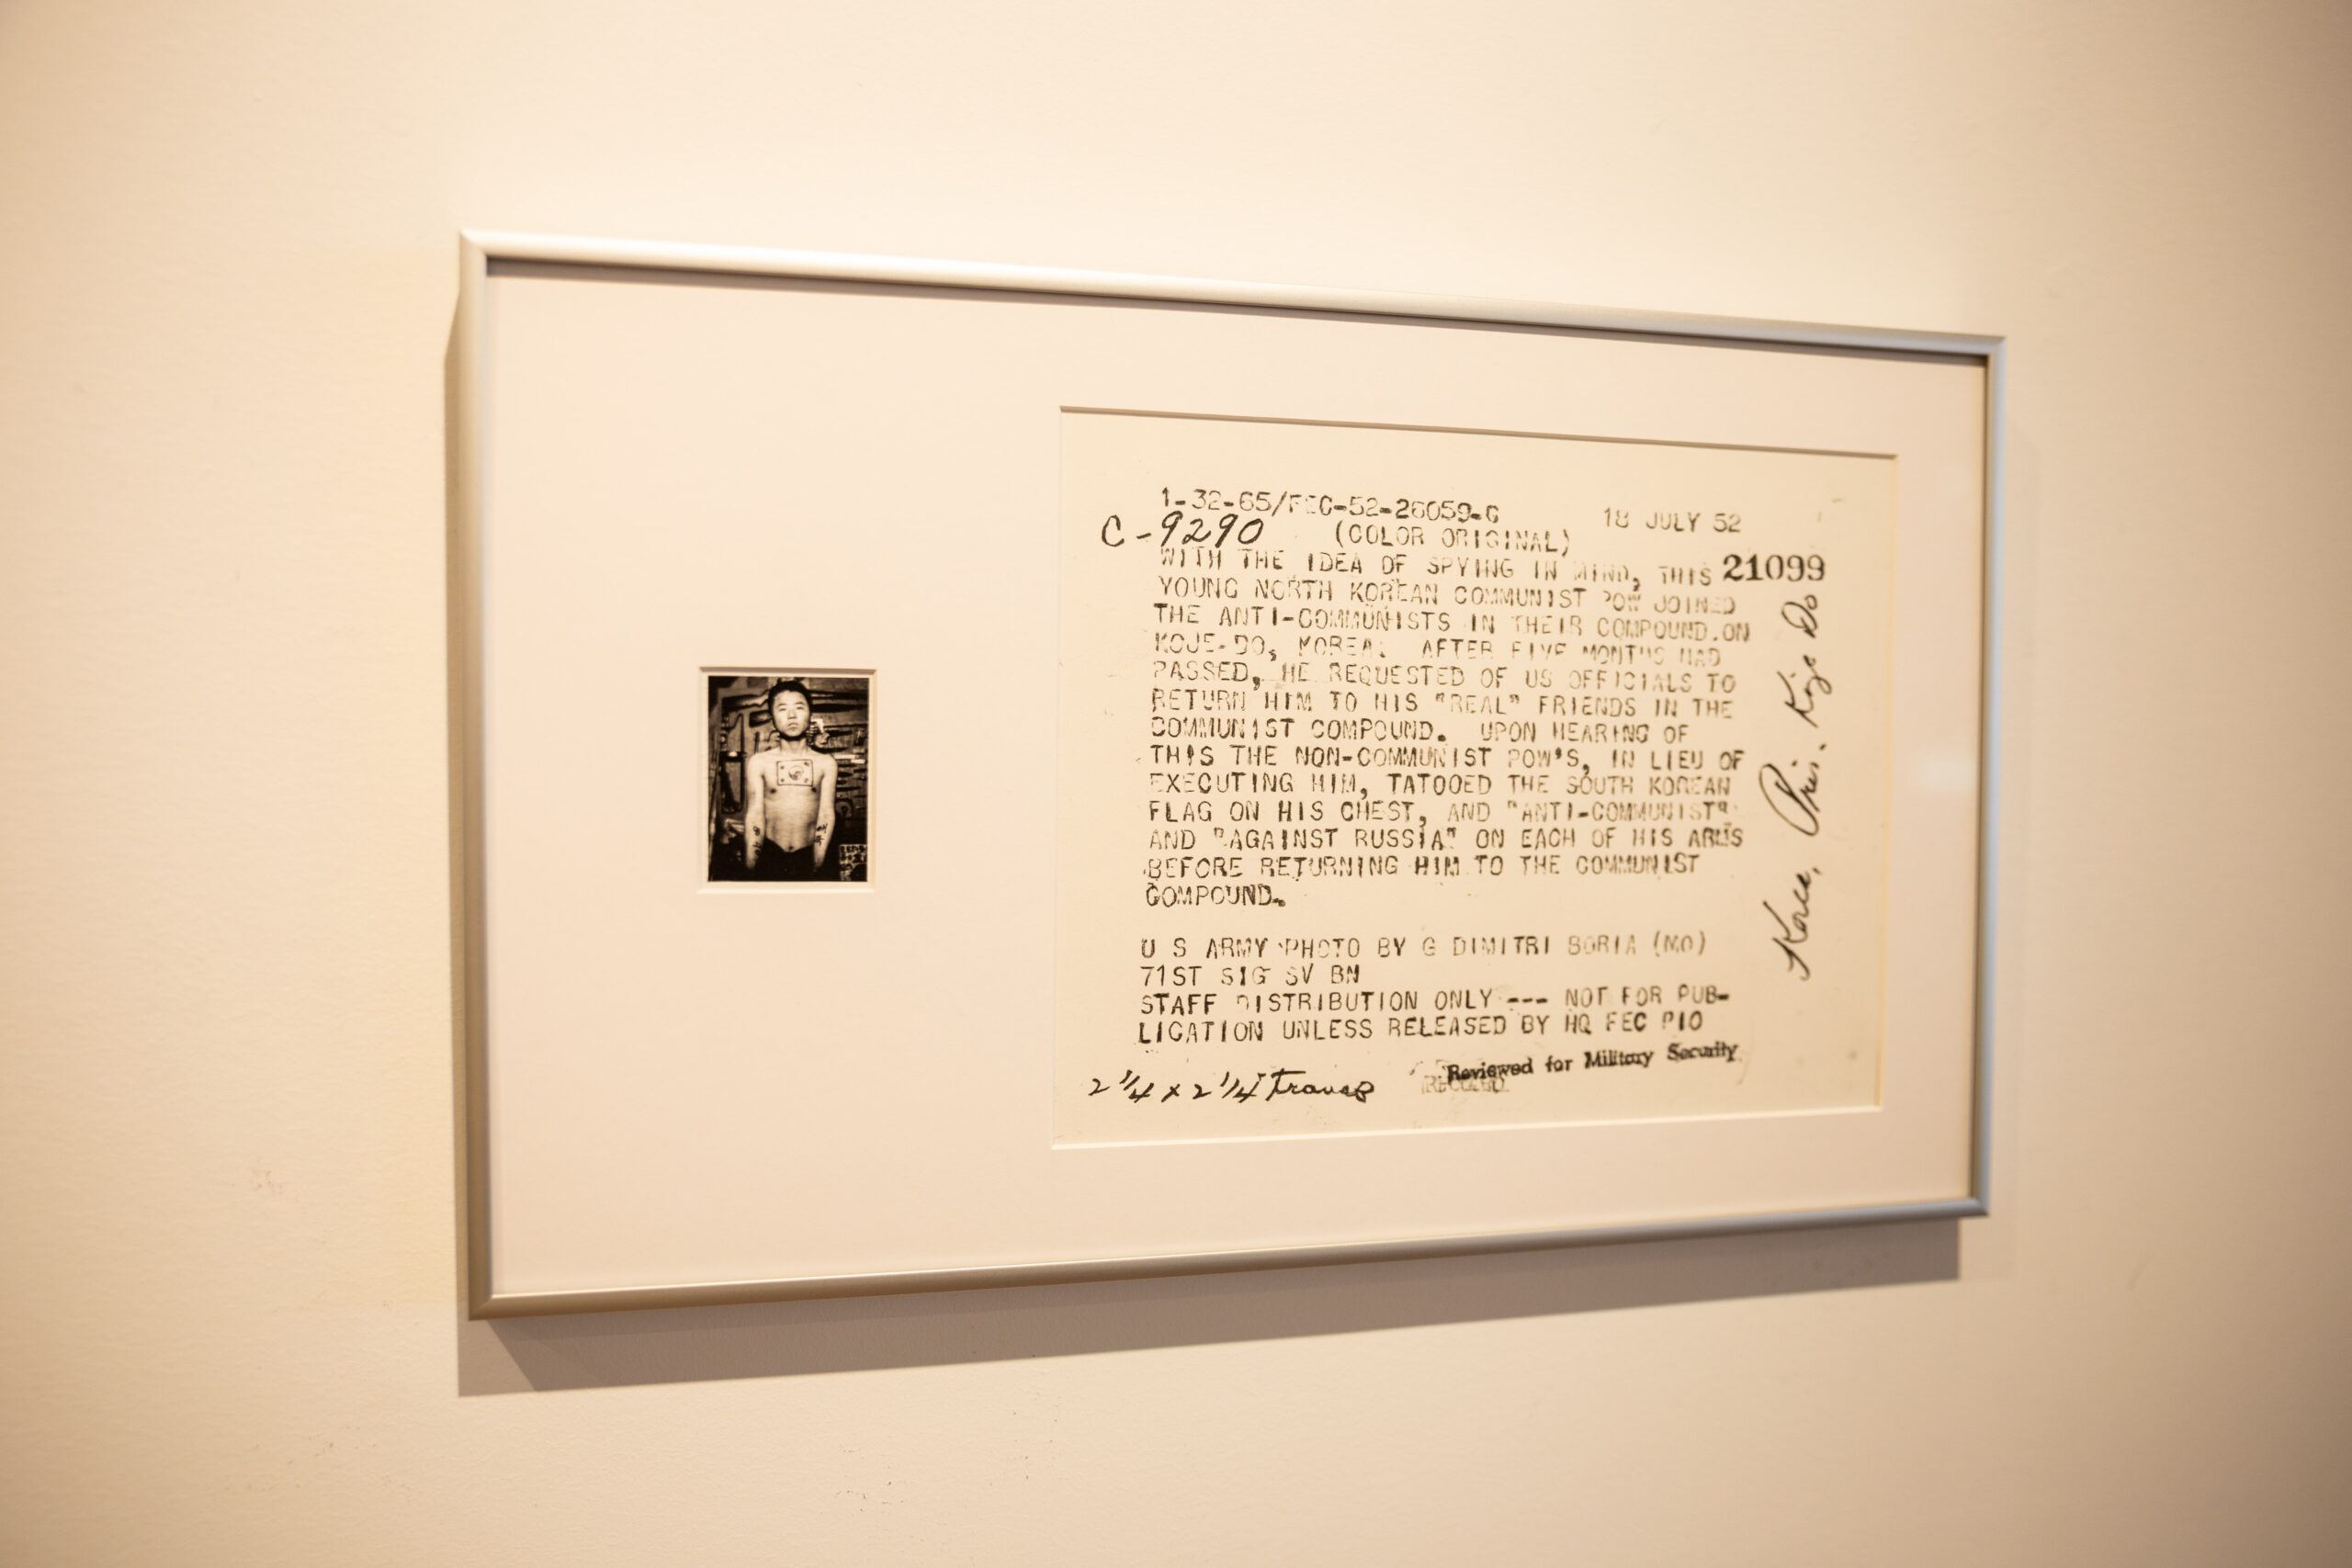 1-32-65/FEC-52-26059-C
18 JULY 52
C-9290
(COLOR ORIGINAL)
WITH THE IDEA OF SPYING IN MIND, THIS
21099
YOUNG NORTH KOREAN COMMUNIST POW JOINED
THE ANTI-COMMUNISTS IN THEIR COMPOUND.ON
KOJE-DO, KOREA. AFTER FIVE MONTHS HAD
PASSED, HE REQUESTED OF US OFFICIALS TO
RETURN HIM TO HIS "REAL" FRIENDS IN THE
COMMUNIST COMPOUND. UPON HEARING OF
THIS THE NON-COMMUNIST POW'S, IN LIEU OF
EXECUTING HIM, TATOOED THE SOUTH KOREAN
FLAG ON HIS CHEST, AND "ANTI-COMMUNIST"
AND "AGAINST RUSSIA" ON EACH OF HIS ARMS
BEFORE RETURNING HIM TO THE COMMUNIST
COMPOUND.
U S ARMY PHOTO BY G DIMITRI BORIA (MO)
71ST SIG SV BN
STAFF DISTRIBUTION ONLY --- NOT FOR PUB-
LICATION UNLESS RELEASED BY HQ FEC PIO
Reviewed for Military Security
2 1/4 x 2 1/4 trans
Korea, Pris. Koje Do